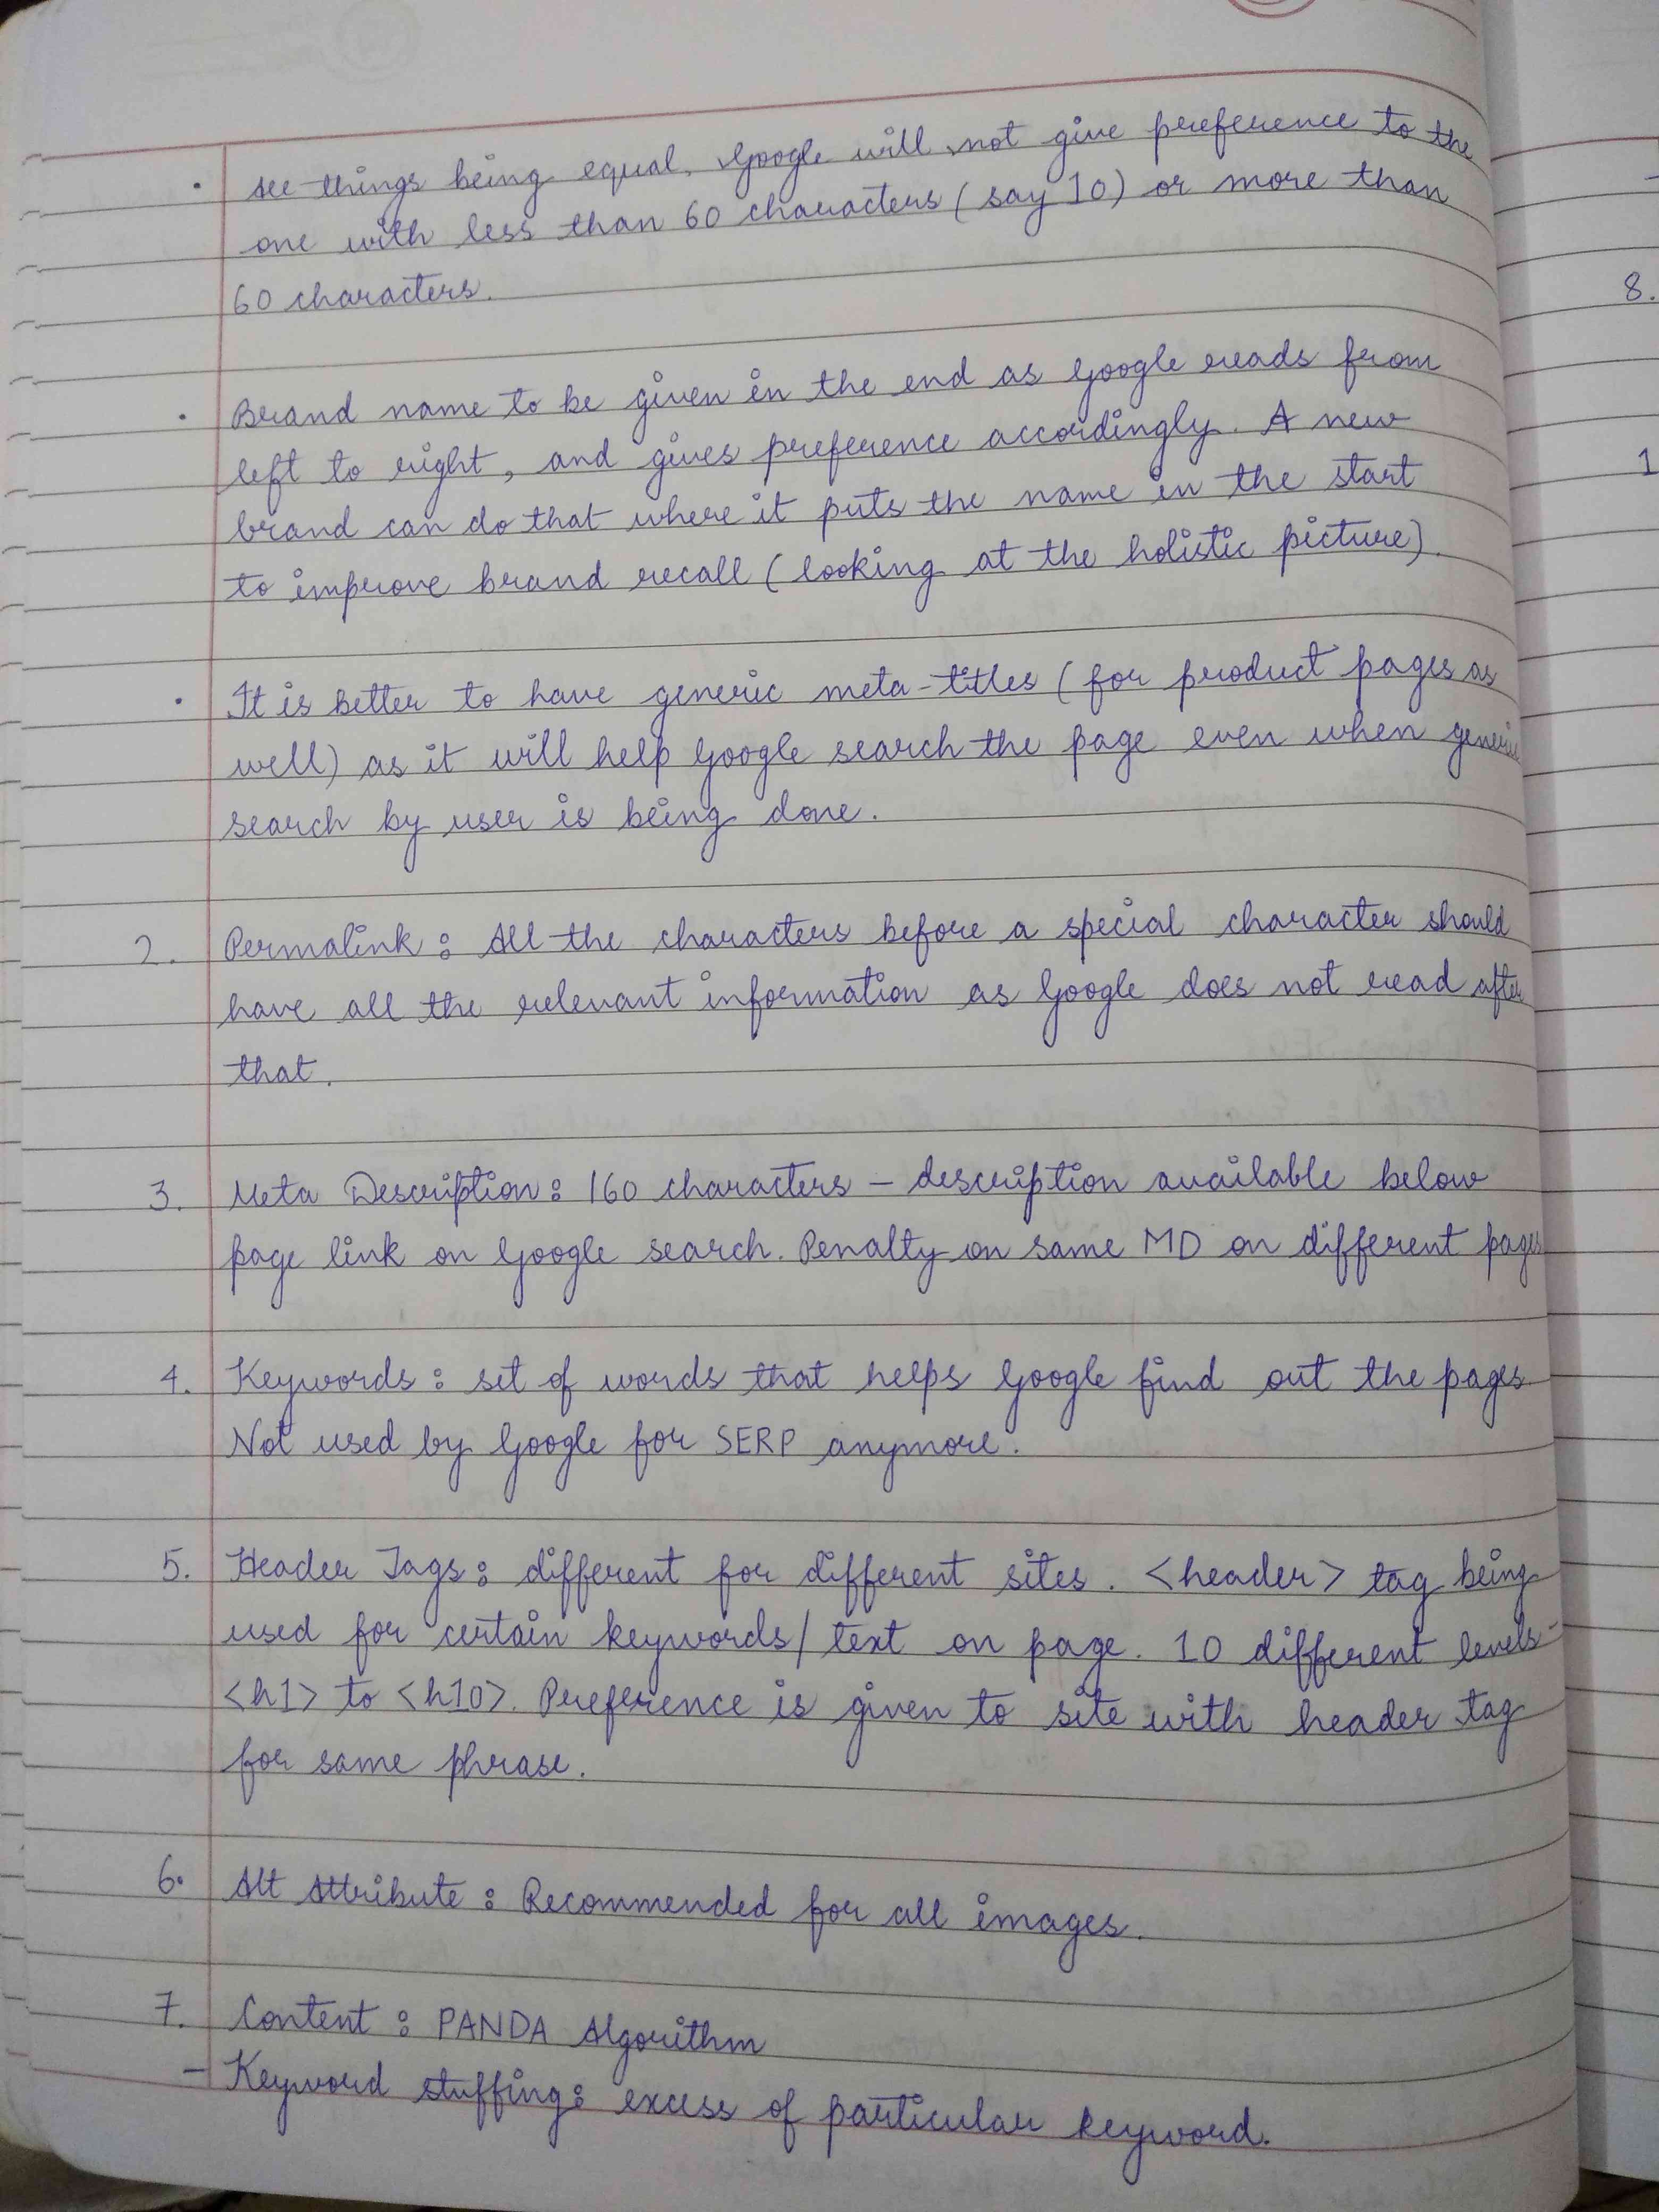 • All things being equal, Google will not give preference to the
one with less than 60 characters (say 10) or more than
60 characters.
• Brand name to be given in the end as Google reads from
left to right, and gives preference accordingly. A new
brand can do that where it puts the name in the start
to improve brand recall (looking at the holistic picture)
• It is better to have generic meta-titles (for product pages as
well) as it will help Google search the page even when generic
search by user is being done.
2. Permalink: All the characters before a special character should
have all the relevant information as Google does not read after
that.
3. Meta Description: 160 characters - description available below
page link on Google search. Penalty on same MD on different pages
4. Keywords: set of words that helps Google find out the pages.
Not used by Google for SERP anymore.
5. Header Tags: different for different sites. <header> tag being
used for certain keywords/text on page. 10 different levels-
<h1> to <h10>. Preference is given to site with header tag
for same phrase.
6. Alt Attribute: Recommended for all images.
7. Content: PANDA Algorithm
- Keyword stuffing: excess of particular keyword.
8.
1